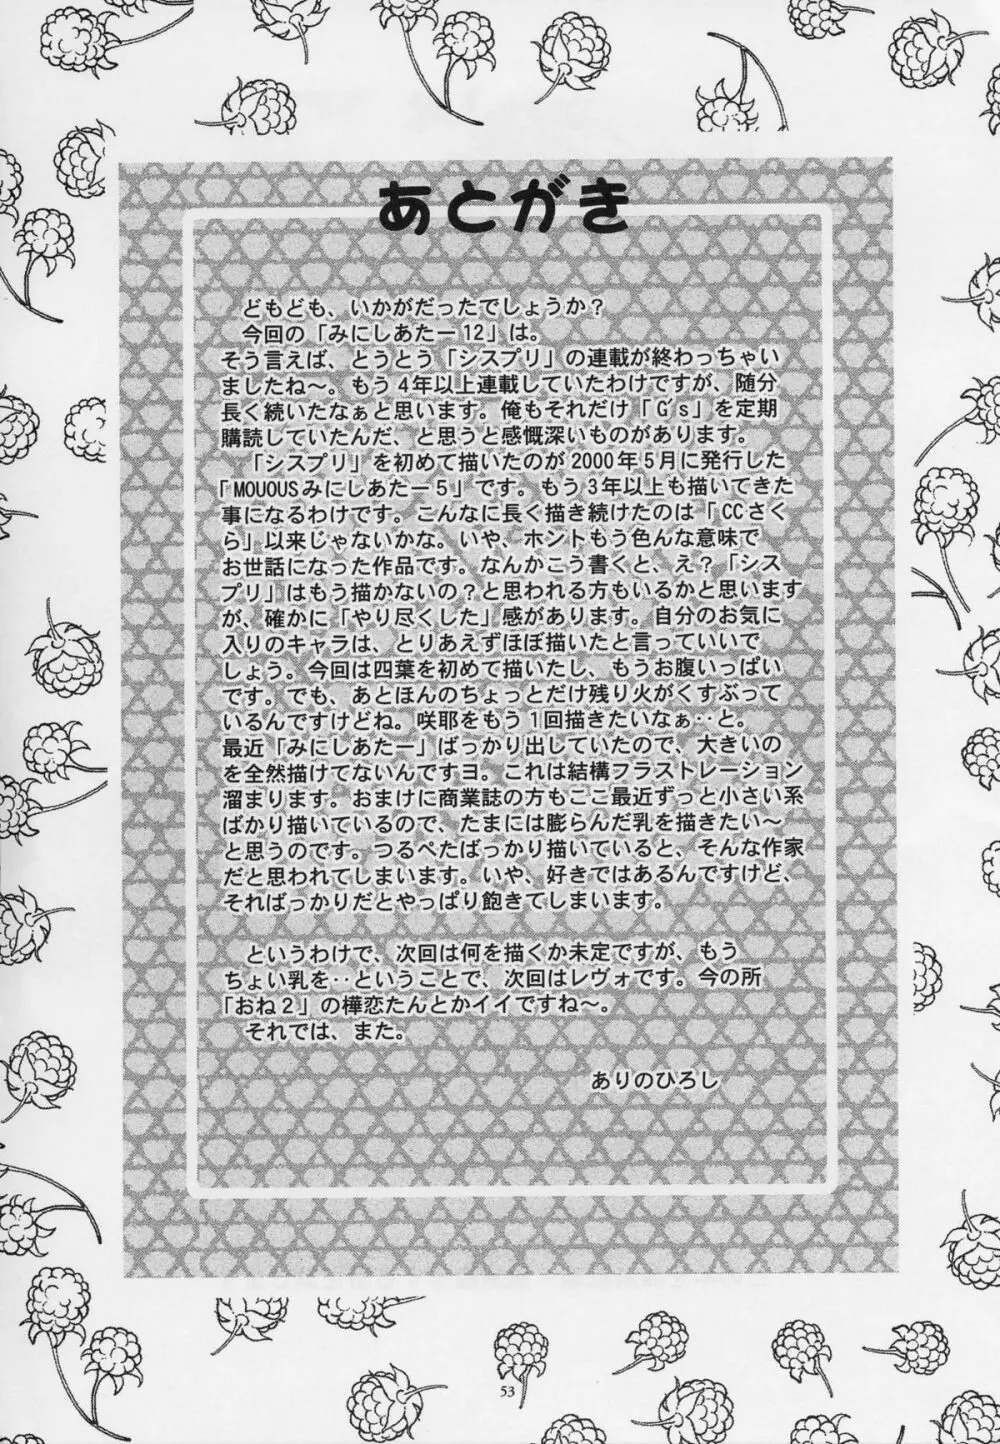 あとがき
どもども、いかがだったでしょうか？
今回の「みにしあたー12」は。
そう言えば、とうとう「シスプリ」の連載が終わっちゃい
ましたね～。もう4年以上連載していたわけですが、随分
長く続いたなぁと思います。俺もそれだけ「G's」を定期
購読していたんだ、と思うと感慨深いものがあります。
「シスプリ」を初めて描いたのが2000年5月に発行した
「MOUOUSみにしあたー5」です。もう3年以上も描いてきた
事になるわけです。こんなに長く描き続けたのは「CCさく
ら」以来じゃないかな。いや、ホントもう色んな意味で
お世話になった作品です。なんかこう書くと、え？「シス
プリ」はもう描かないの？と思われる方もいるかと思います
が、確かに「やり尽くした」感があります。自分のお気に
入りのキャラは、とりあえずほぼ描いたと言っていいで
しょう。今回は四葉を初めて描いたし、もうお腹いっぱい
です。でも、あとほんのちょっとだけ残り火がくすぶって
いるんですけどね。咲耶をもう1回描きたいなぁ‥と。
最近「みにしあたー」ばっかり出していたので、大きいの
を全然描けてないんですヨ。これは結構フラストレーション
溜まります。おまけに商業誌の方もここ最近ずっと小さい系
ばかり描いているので、たまには膨らんだ乳を描きたい～
と思うのです。つるぺたばっかり描いていると、そんな作家
だと思われてしまいます。いや、好きではあるんですけど、
そればっかりだとやっぱり飽きてしまいます。
というわけで、次回は何を描くか未定ですが、もう
ちょい乳を‥ということで、次回はレヴォです。今の所
「おね2」の樺恋たんとかイイですね～。
それでは、また。
ありのひろし
53